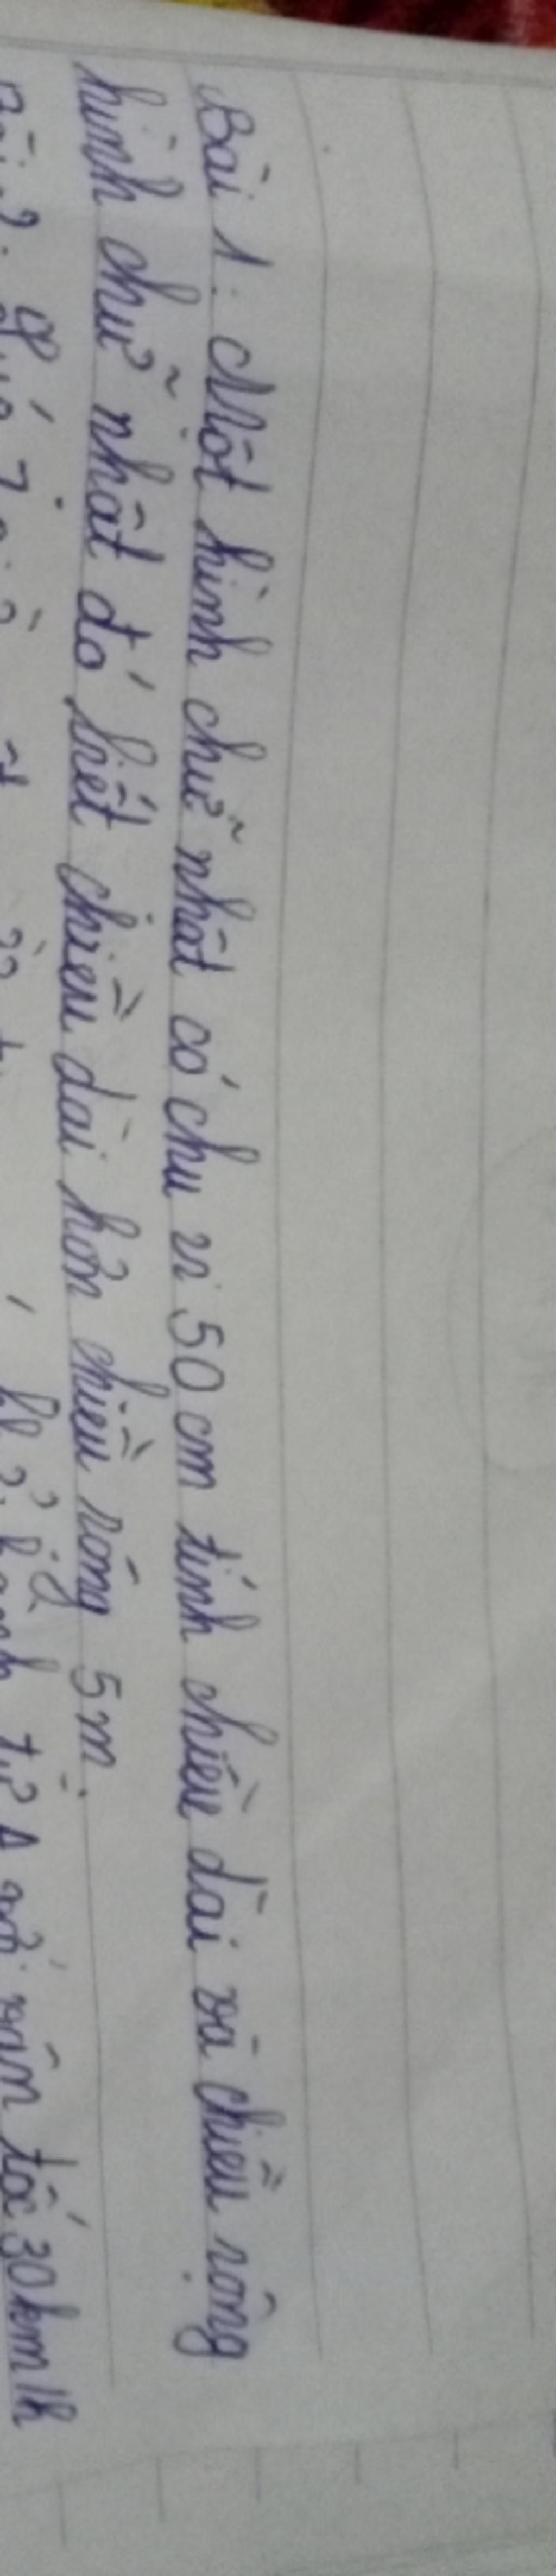 Bài 1: Một hình chữ nhật có chu vi 50 cm tính chiều dài và chiều rộng
hình chữ nhật đó biết chiều dài hơn chiều rộng 5m.
từ A với vận tốc 30km/h